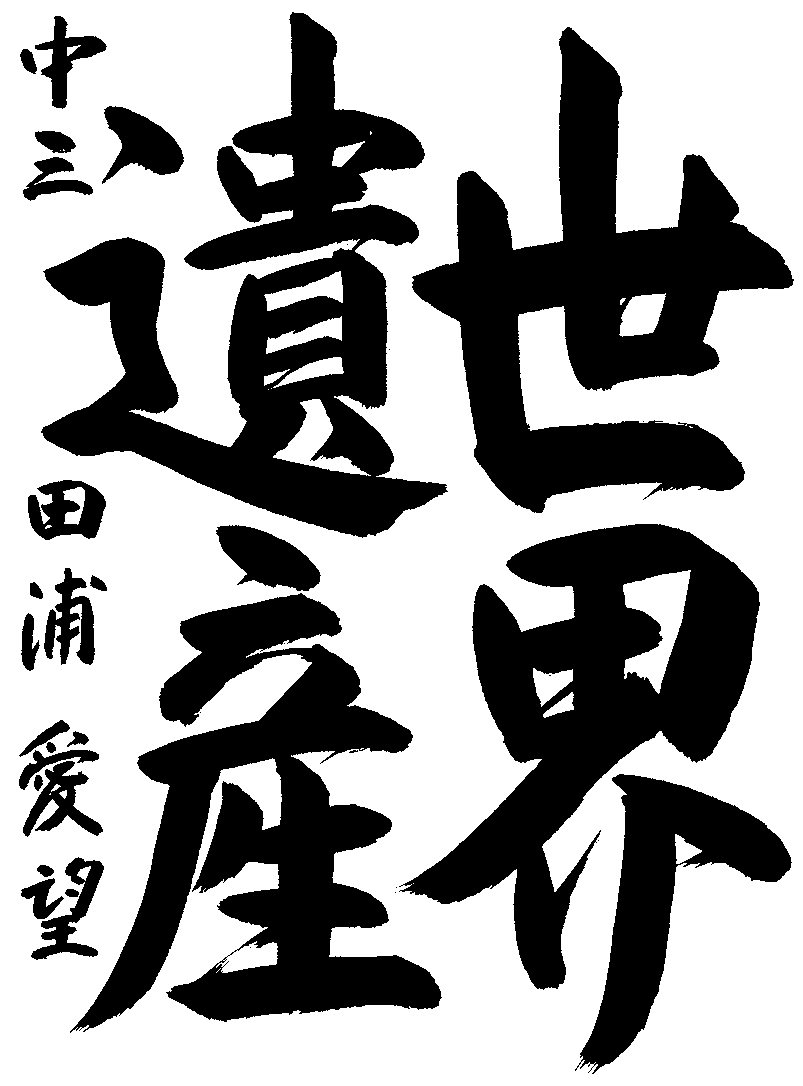 世界
遺産
中三 田浦 愛望